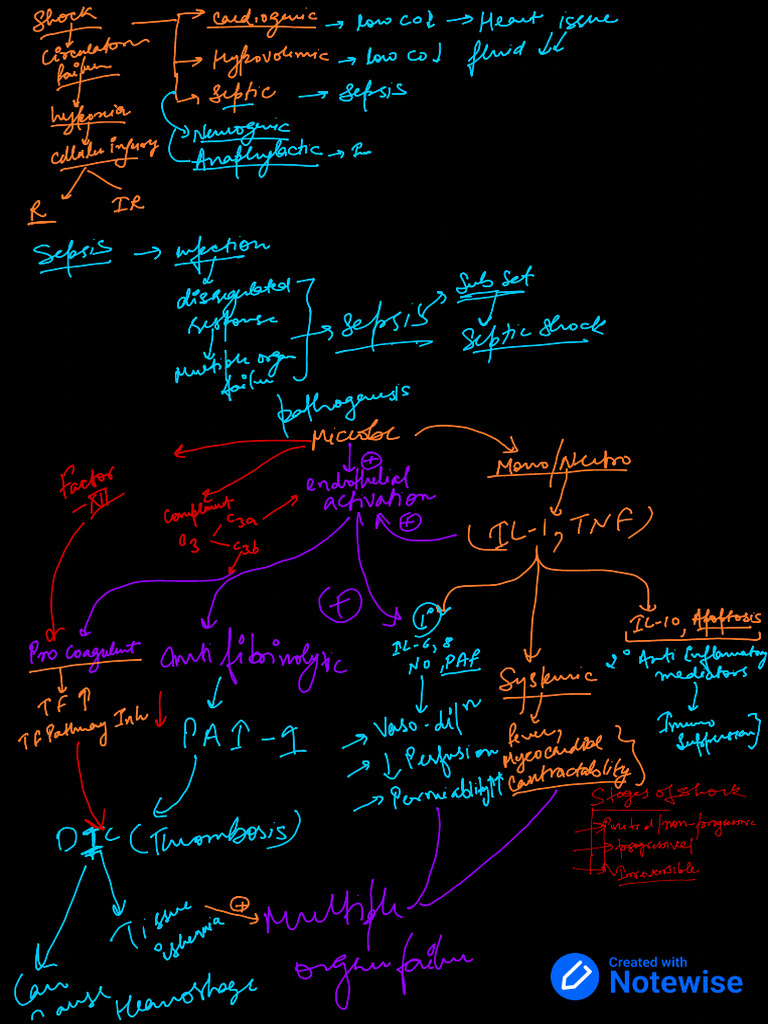 Shock
Circulatory
failure
hypoxia
Cellular injury
R
IR
Cardiogenic → low co↓ → Heart issue
Hypovolemic → low co↓ fluid ↓↓
Septic → Sepsis
Neurogenic
Anaphylactic →
Sepsis → infection
disregulated
response
Multiple organ
failure
→ Sepsis
Sub set
Septic Shock
pathogenesis
Microbe
Factor
XII
Complement
C3
C3a
C3b
+
endothelial
activation
+
Mono/Neutro
(IL-1, TNF)
+
Pro coagulant
TF ↑
TF Pathway Inh ↓
Anti fibrinolytic
PAI-1
IL-6, 8
NO, PAF
→ Vaso-diln
→ ↓ Perfusion
→ Permiablity↑↑
Systemic
fever,
Myocardial
Contractability
IL-10, Apoptosis
2° Anti Inflamatory
mediators
Immuno
Suppression
DIC (Thrombosis)
Stages of shock
→ Initial/non-progressive
→ progressive
→ Irreversible
Tissue
ischemia
+
Multiple
organ failure
Can
cause Heamorhage
Created with
Notewise